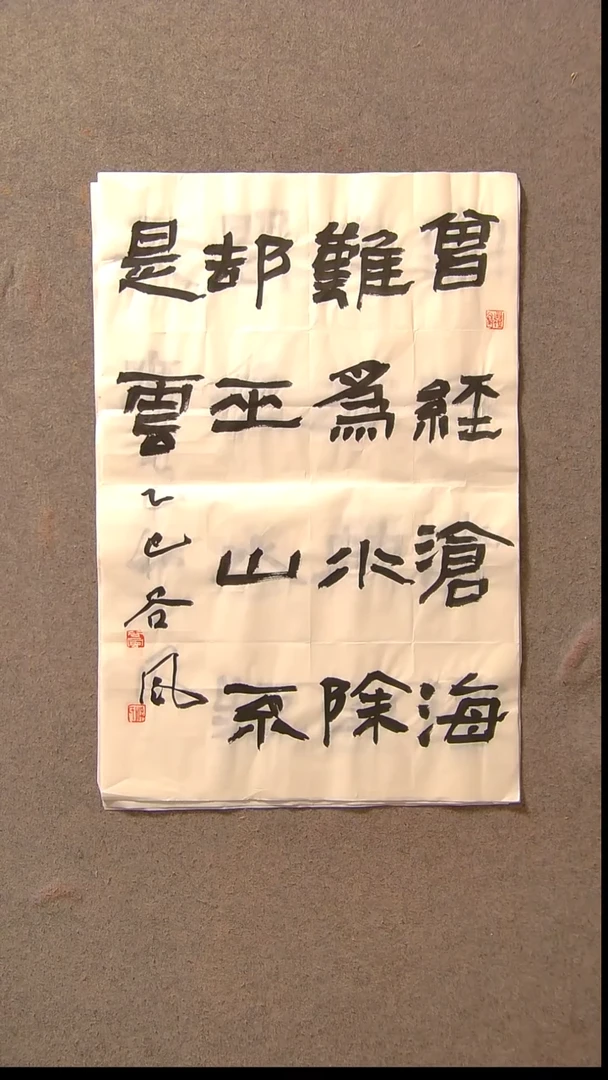 曾経滄海
難為水除
却巫山不
是雲
乙巳谷風